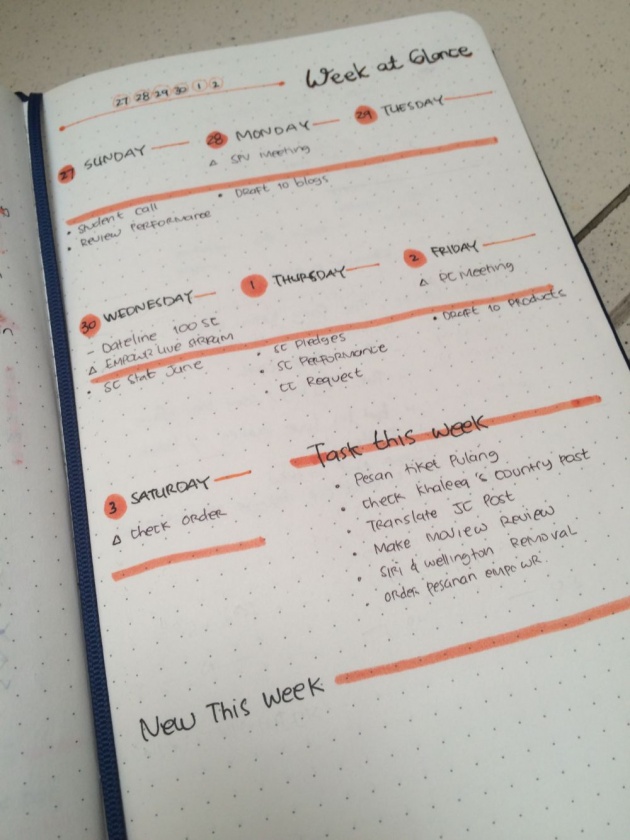 Week at Glance
27 28 29 30 1 2
27 SUNDAY
28 MONDAY
29 TUESDAY
△ SPV Meeting
• Student Call
• Review Performance
• Draft 10 blogs
30 WEDNESDAY
1 THURSDAY
2 FRIDAY
- Dateline 100 SC
△ EMPOWR Live stream
• SC Stat June
• SC Pledges
• SC Performance
• CC Request
△ PC Meeting
• Draft 10 Products
3 SATURDAY
△ check order
Task this week
• Pesan tiket Pulang
• Check Khaleea's Country Post
• Translate JC Post
• Make Moview Review
• SIRI & Wellington Removal
• Order pesanan EMPOWR
New This Week